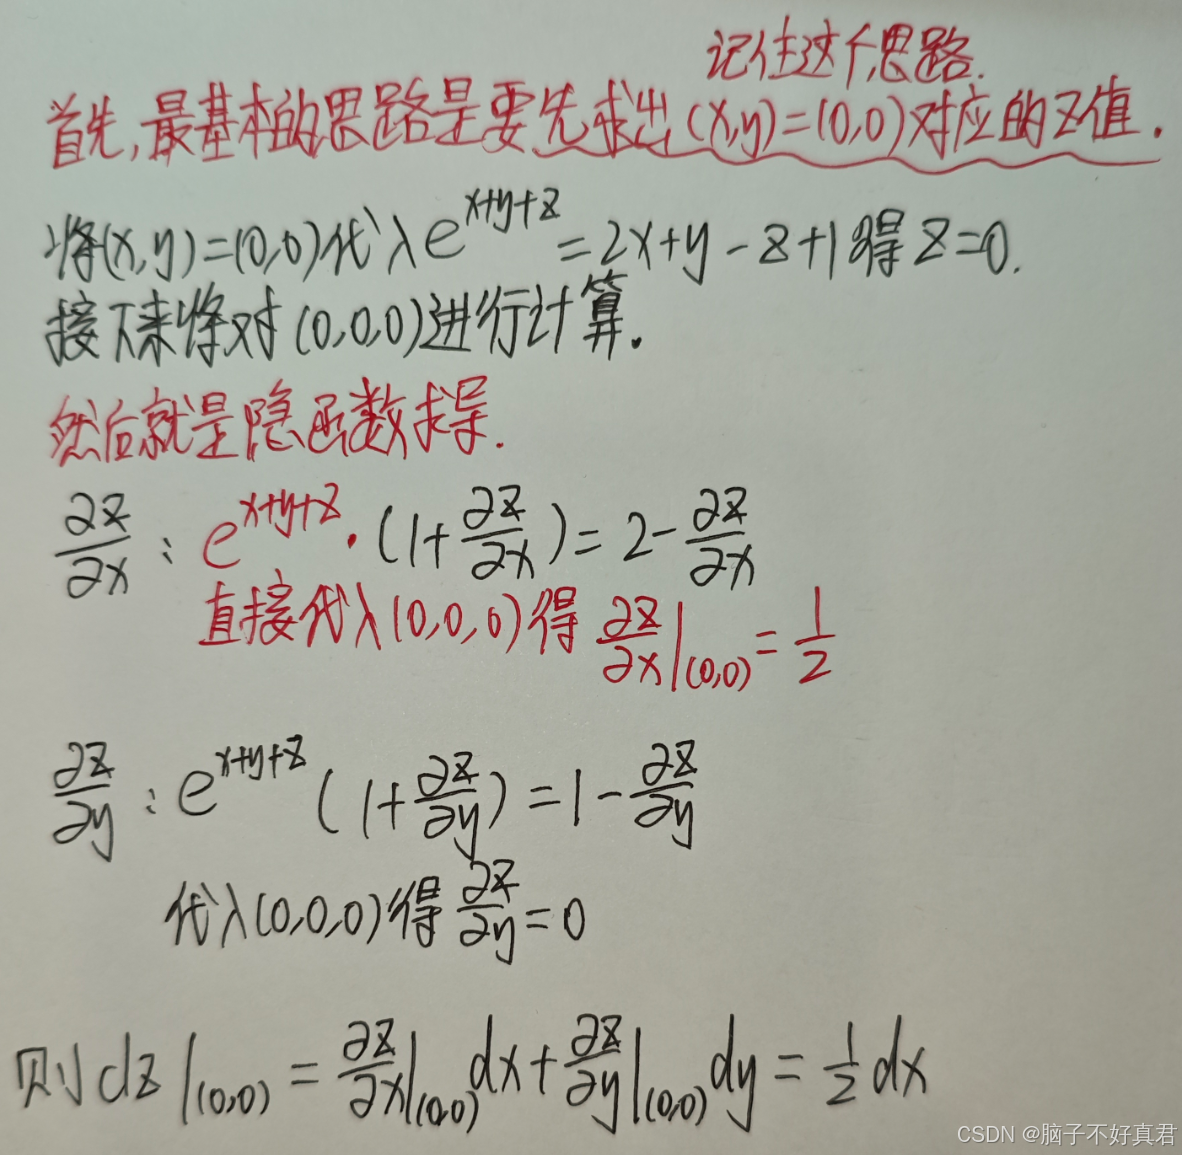 记住这个思路.
首先,最基本的思路是要先求出(x,y)=(0,0)对应的z值.
将(x,y)=(0,0)代入e^{x+y+z}=2x+y-z+1得z=0.
接下来将对(0,0,0)进行计算.
然后就是隐函数求导.
∂z/∂x : e^{x+y+z}·(1+∂z/∂x)=2-∂z/∂x
直接代入(0,0,0)得 ∂z/∂x|(0,0)=1/2
∂z/∂y : e^{x+y+z}(1+∂z/∂y)=1-∂z/∂y
代入(0,0,0)得 ∂z/∂y=0
则dz|(0,0)=∂z/∂x|(0,0)dx+∂z/∂y|(0,0)dy=1/2dx
CSDN @脑子不好真君